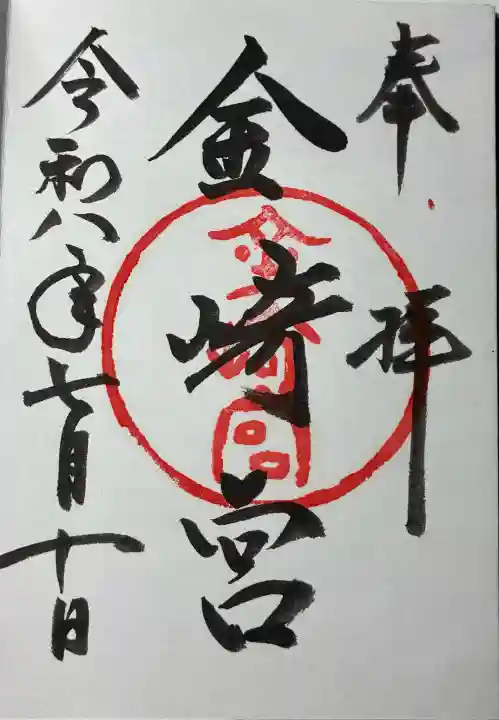 奉拝
金崎宮
令和八年七月十日
金崎宮